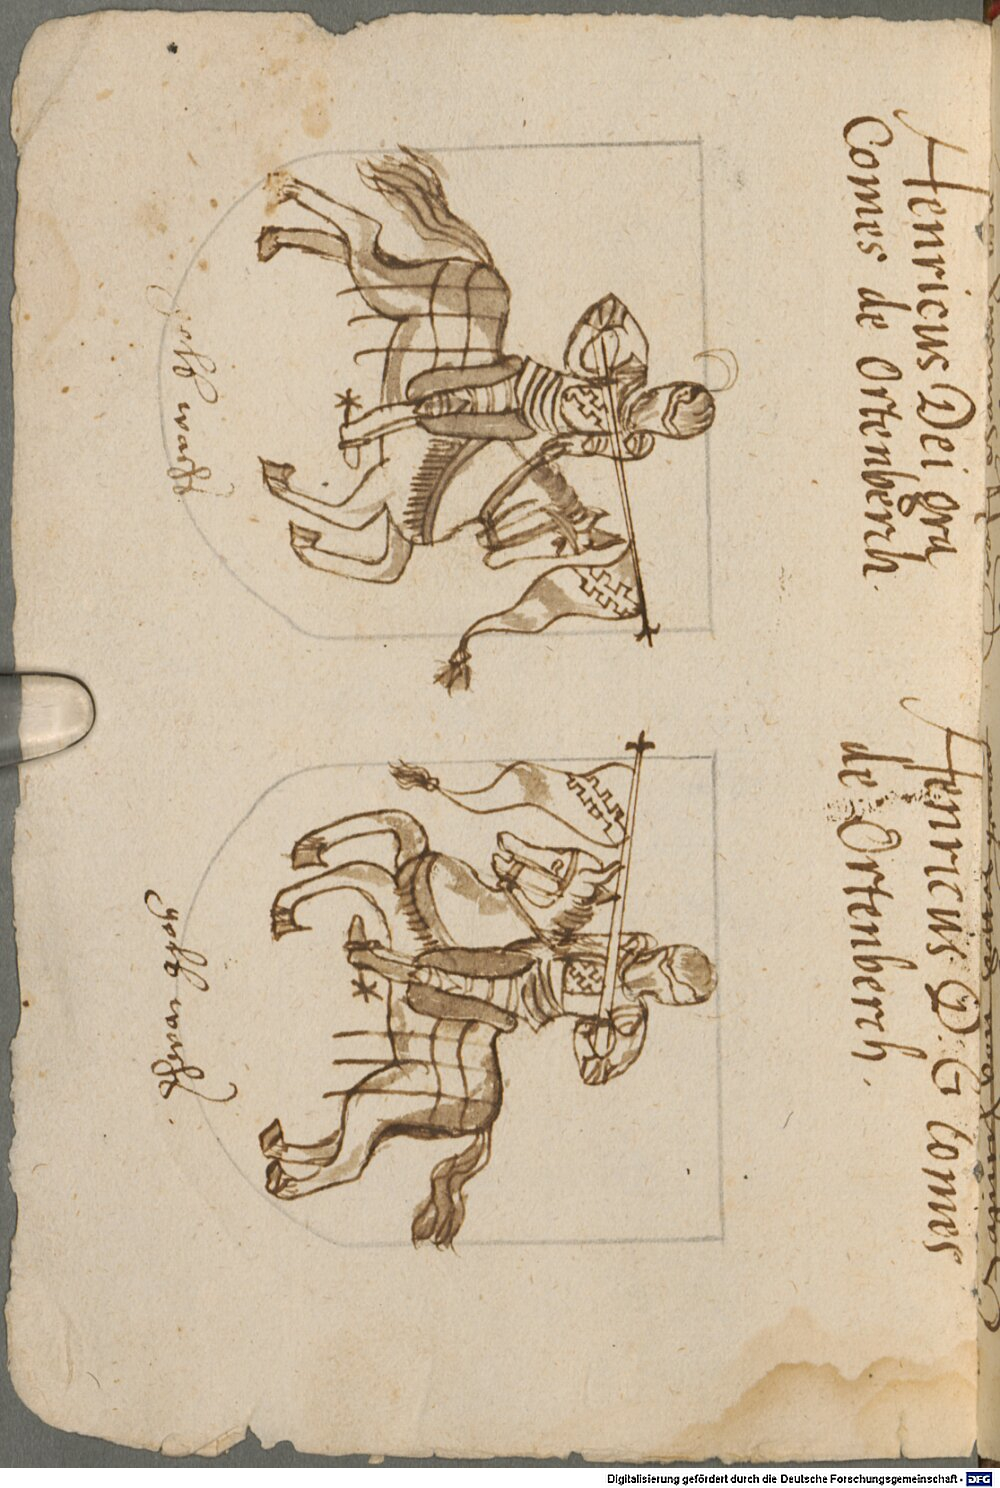 Henricus Dei gra
Comes de Ortenberch.
Henricus. D: G Comes
de Ortenberch.
gelb wachs
gelb wachs.
Digitalisierung gefördert durch die Deutsche Forschungsgemeinschaft - DFG